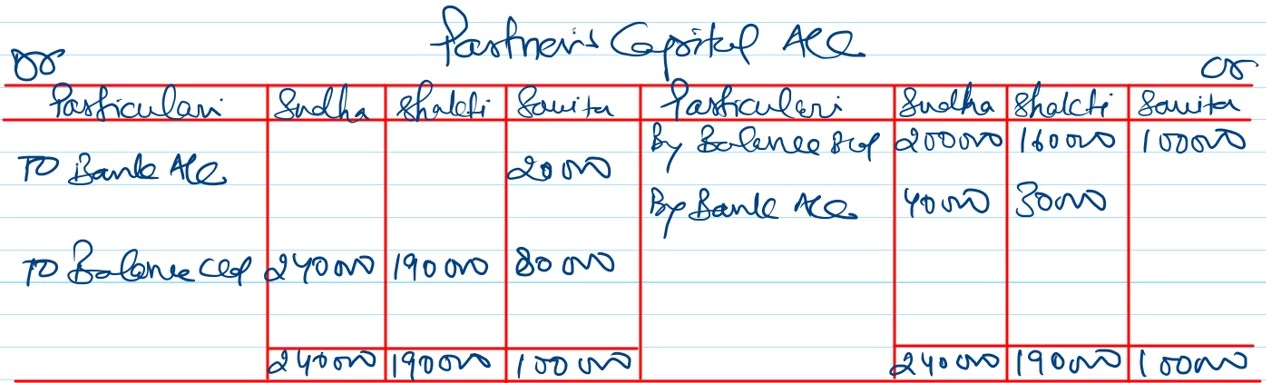 Partner's Capital A/C
Dr Cr
Particulars Sudha Shakti Savita Particulars Sudha Shakti Savita
By Balance B/d 200000 160000 100000
To Bank A/C 20000
By Bank A/C 40000 30000
To Balance C/d 240000 190000 80000
240000 190000 100000 240000 190000 100000